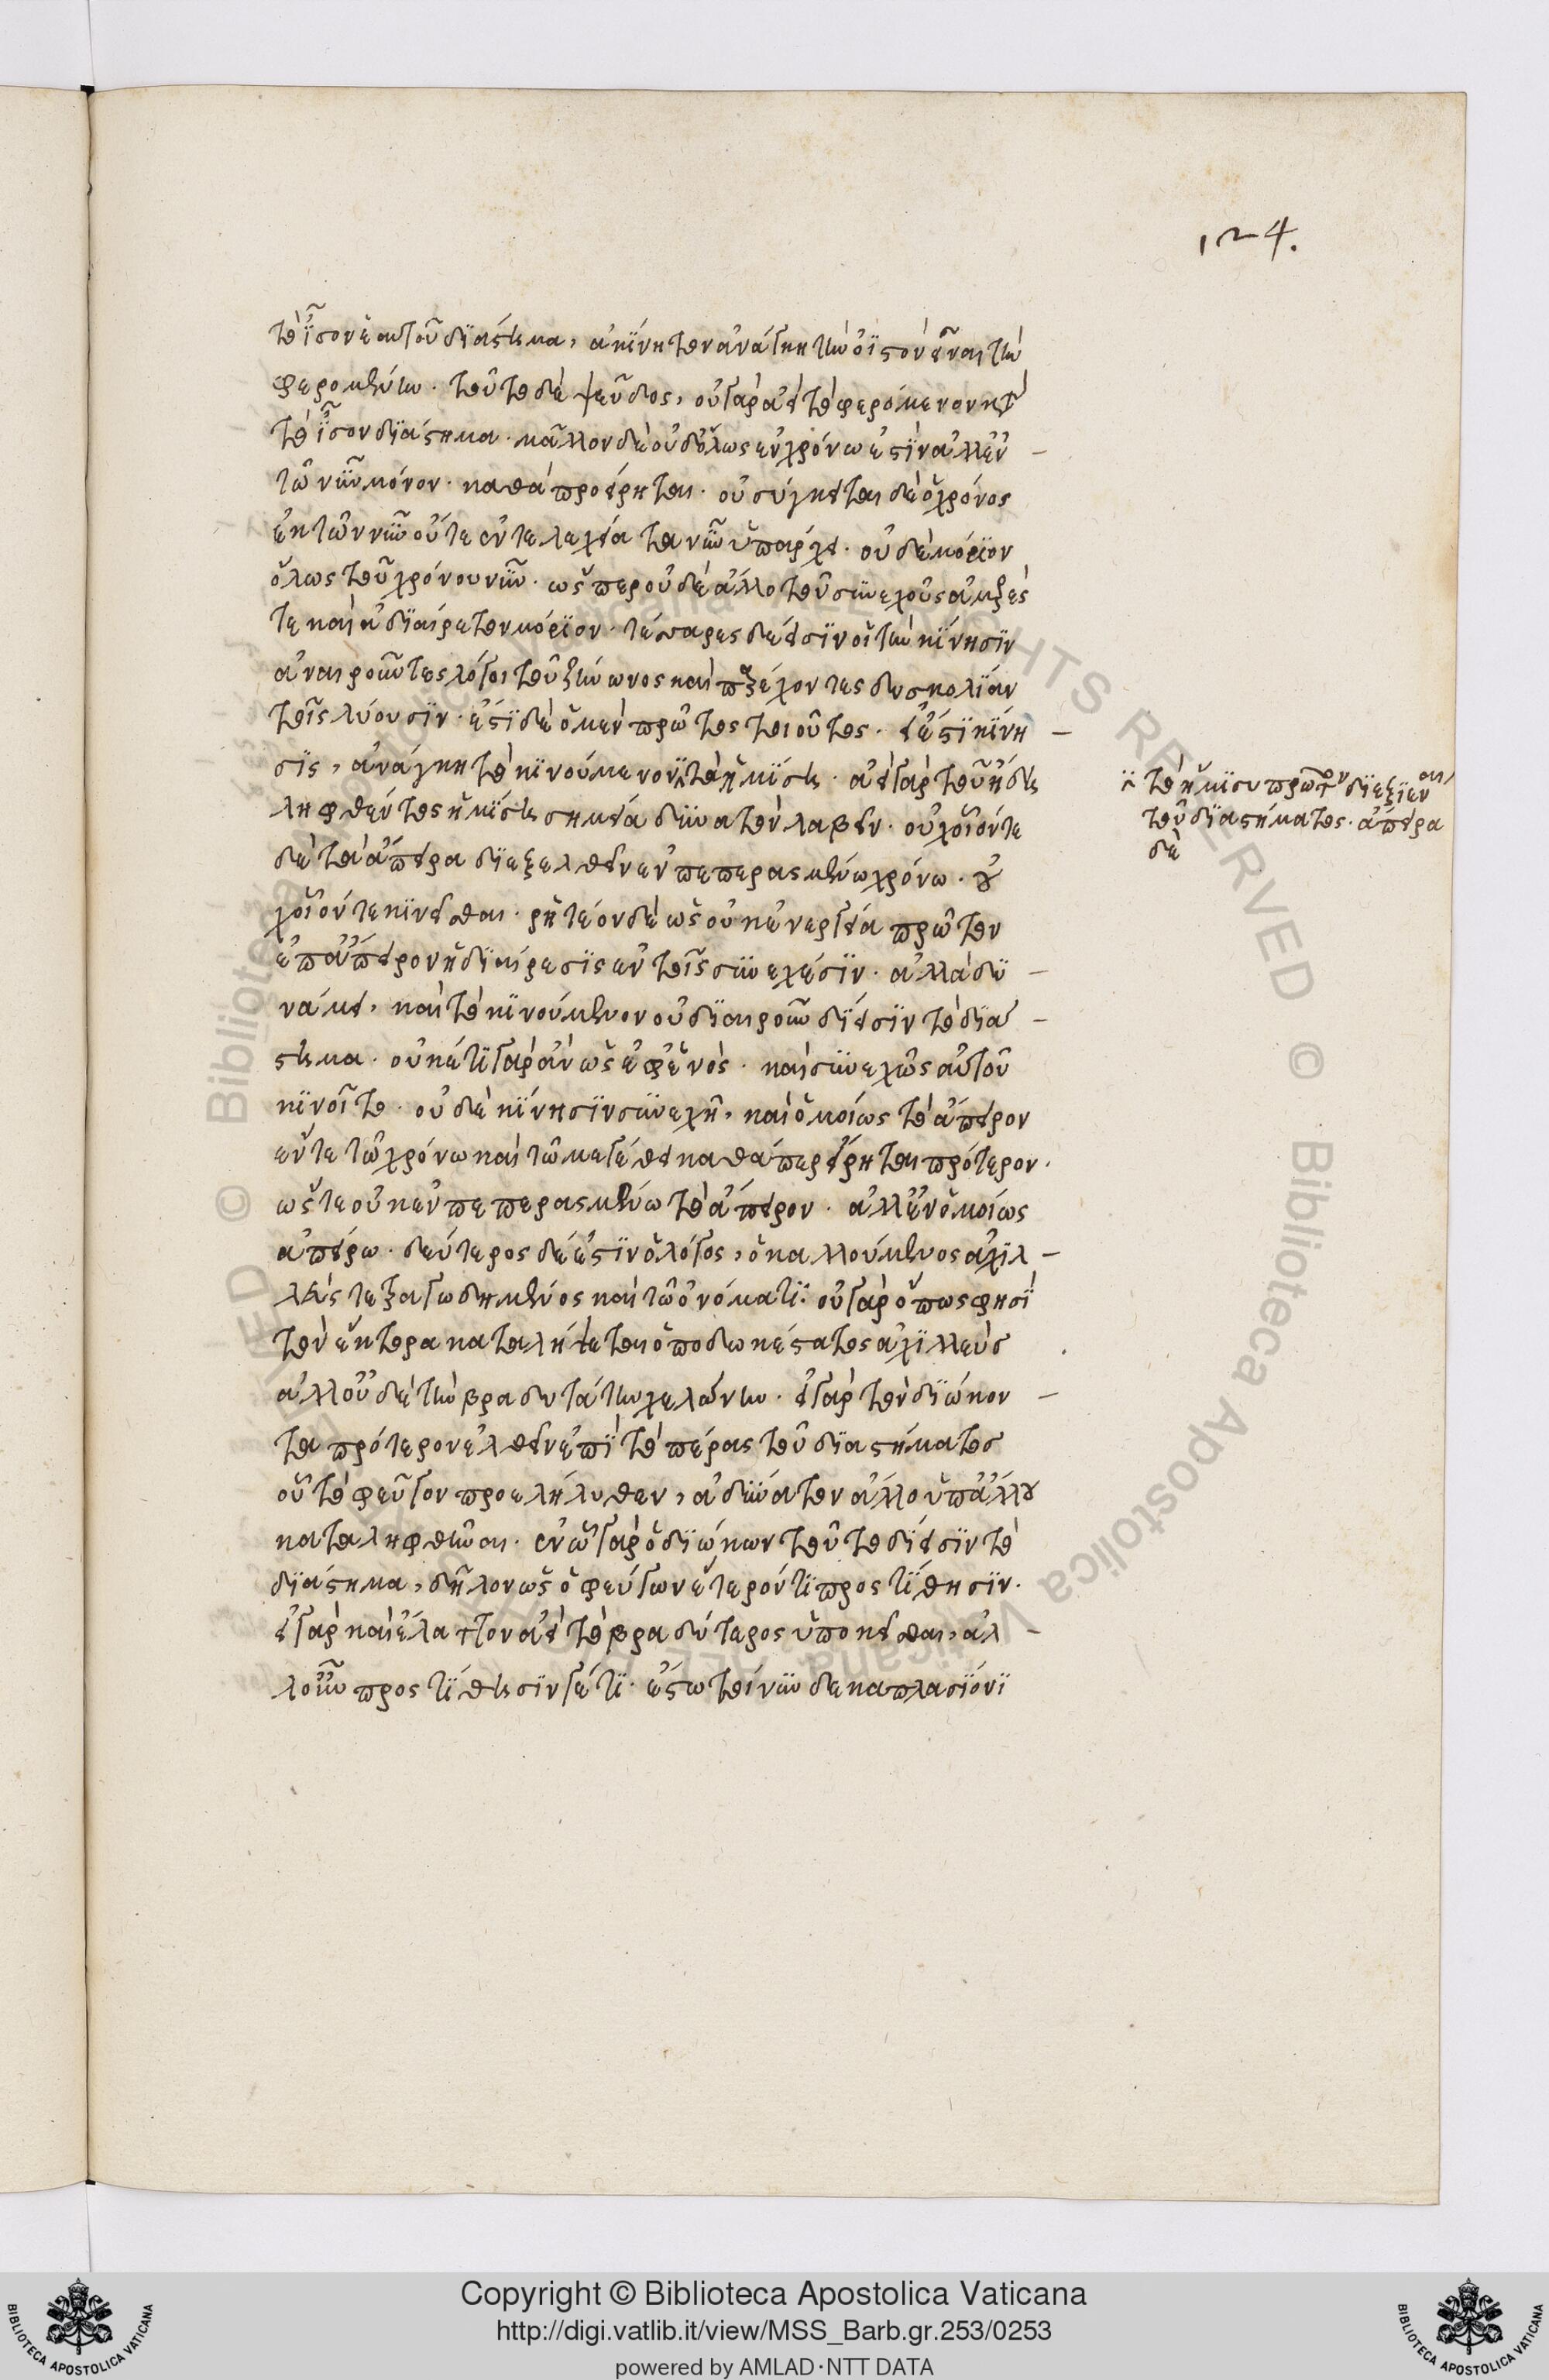 124.
τὸ ἴσον ἑαυτοῦ διάστημα, ἀκίνητον ἀνάγκη τὴν ὀϊστὸν εἶναι τὴν
φερομένην. τοῦτο δὲ ψεῦδος, οὐ γὰρ ἀεὶ τὸ φερόμενον κατὰ
τὸ ἴσον διάστημα. μᾶλλον δὲ οὐδ' ὅλως ἐν χρόνω ἐστὶν ἀλλ' ἐν
τῶ νῦν μόνον. καθὰ προείρηται. οὐ σύγκειται δὲ ὁ χρόνος
ἐκ τῶν νῦν οὔτε ἐντελεχεία τὰ νῦν ὑπάρχει. οὐδὲ μόριον
ὅλως τοῦ χρόνου νῦν. ὥσπερ οὐδὲ ἄλλο τοῦ συνεχοῦς ἀμερές
τε καὶ ἀδιαίρετον μόριον. τέσσαρες δὲ εἰσὶν οἱ τὴν κίνησιν
ἀναιροῦντες λόγοι τοῦ ζήνωνος καὶ παρέχοντες δυσκολίαν
τοῖς λύουσιν. ἔστι δὲ ὁ μὲν πρῶτος τοιοῦτος. εἰ ἔστι κίνη
σις, ἀνάγκη τὸ κινούμενον τὰ ἡμίση. ἀεὶ γὰρ τοῦ ἤδη
ληφθέντος ἡμίση σημεῖα δυνατὸν λαβεῖν. οὐχ οἷόν τε
δὲ τὰ ἄπειρα διεξελθεῖν ἐν πεπερασμένω χρόνω. οὐ
χ οἷόν τε κινεῖσθαι. ῥητέον δὲ ὡς οὐκ ἐνεργεία πρῶτον
ἐπ' ἄπειρον ἡ διαίρεσις ἐν τοῖς συνεχέσιν. ἀλλὰ δυ
νάμει, καὶ τὸ κινούμενον οὐ διαιροῦν δίεισιν τὸ διά
στημα. οὐκέτι γὰρ ἂν ὡς ἐφ' ἑνὸς. καὶ συνεχῶς αὐτοῦ
κινοῖτο. οὐδὲ κίνησιν συνεχῆ, καὶ ὁμοίως τὸ ἄπειρον
ἔν τε τῶ χρόνω καὶ τῶ μεγέθει καθάπερ εἴρηται πρότερον.
ὥστε οὐκ ἐν πεπερασμένω τὸ ἄπειρον. ἀλλ' ἐν ὁμοίως
ἀπείρω. δεύτερος δέ ἐστιν ὁ λόγος, ὁ καλλούμενος ἀχιλ
λεὺς τετραγωδημένος καὶ τῶ ὀνόματι. οὐ γὰρ ὅπως φησὶ
τὸν ἕκτορα καταλήψεται ὁ ποδωκέστατος ἀχιλλεὺς
ἀλλ' οὐδὲ τὴν βραδυτάτην χελώνην. εἰ γὰρ τὸν διώκον
τα πρότερον ἐλθεῖν ἐπὶ τὸ πέρας τοῦ διαστήματος
οὗ τὸ φεῦγον προελήλυθεν, ἀδύνατον ἄλλο ὑπ' ἄλλου
καταληφθῆναι. ἐν ὧ γὰρ ὁ διώκων τοῦτο δίεισιν τὸ
διάστημα, δῆλον ὡς ὁ φεύγων ἕτερόν τι προστίθησιν.
εἰ γὰρ καὶ ἔλαττον ἀεὶ τὸ βραδύτερος ὑποκεῖσθαι, ἀλ
λ' οὖν προστίθησιν γέ τι. ἔστω τοίνυν δεκαπλασίονι
τὸ ἥμισυ πρῶτον διεξιέναι
τοῦ διαστήματος. ἄπειρα
δὲ
Copyright © Biblioteca Apostolica Vaticana
http://digi.vatlib.it/view/MSS_Barb.gr.253/0253
powered by AMLAD·NTT DATA